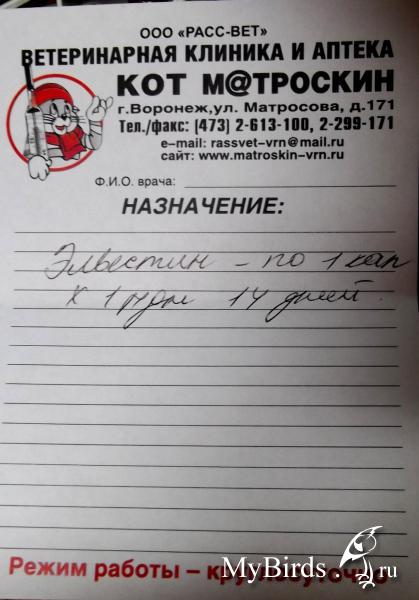 ООО «РАСС-ВЕТ»
ВЕТЕРИНАРНАЯ КЛИНИКА И АПТЕКА
КОТ М@ТРОСКИН
г.Воронеж,ул. Матросова, д.171
Тел./факс: (473) 2-613-100, 2-299-171
e-mail: rassvet-vrn@mail.ru
сайт: www.matroskin-vrn.ru
Ф.И.О. врача:
НАЗНАЧЕНИЕ:
Элвестин - по 1 кап
х 1 р/дн 14 дней.
Режим работы – круглосуточно
MyBirds.ru